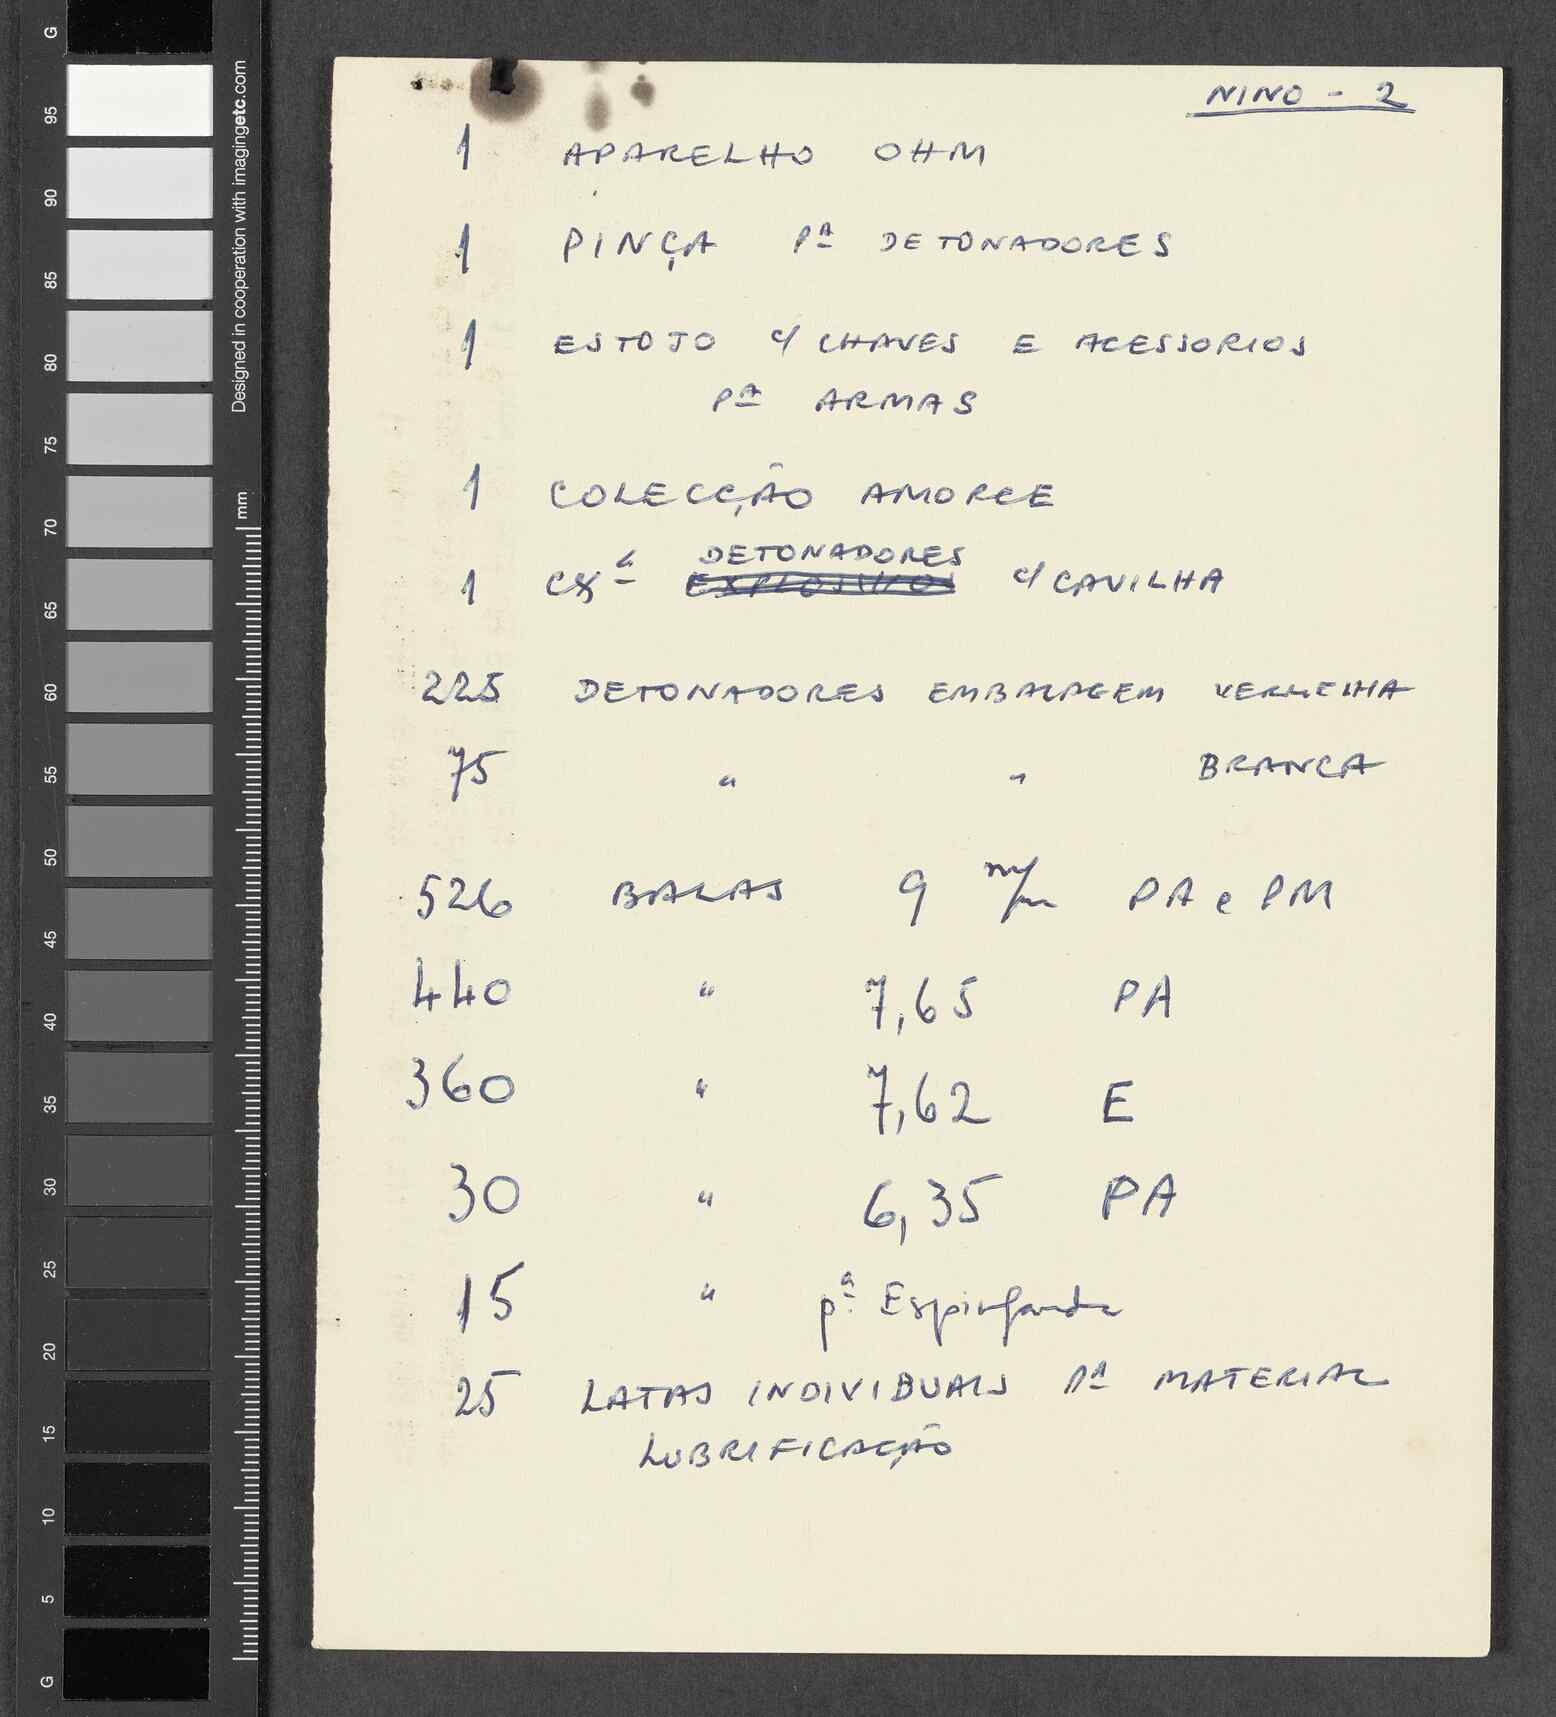 NINO - 2
1 APARELHO OHM
1 PINÇA Pª DETONADORES
1 ESTOJO c/ CHAVES E ACESSORIOS
Pª ARMAS
1 COLECÇÃO AMORCE
DETONADORES
1 CXª EXPLOSIVOS c/ CAVILHA
225 DETONADORES EMBALAGEM VERMELHA
75 " " BRANCA
526 BALAS 9 m/m PA e PM
440 " 7,65 PA
360 " 7,62 E
30 " 6,35 PA
15 " pª Espingarda
25 LATAS INDIVIDUAIS Pª MATERIAL
LUBRIFICAÇÃO
G
95
90
85
80
75
70
65
60
55
50
45
40
35
30
25
20
15
10
5
G
Designed in cooperation with imagingetc.com
mm